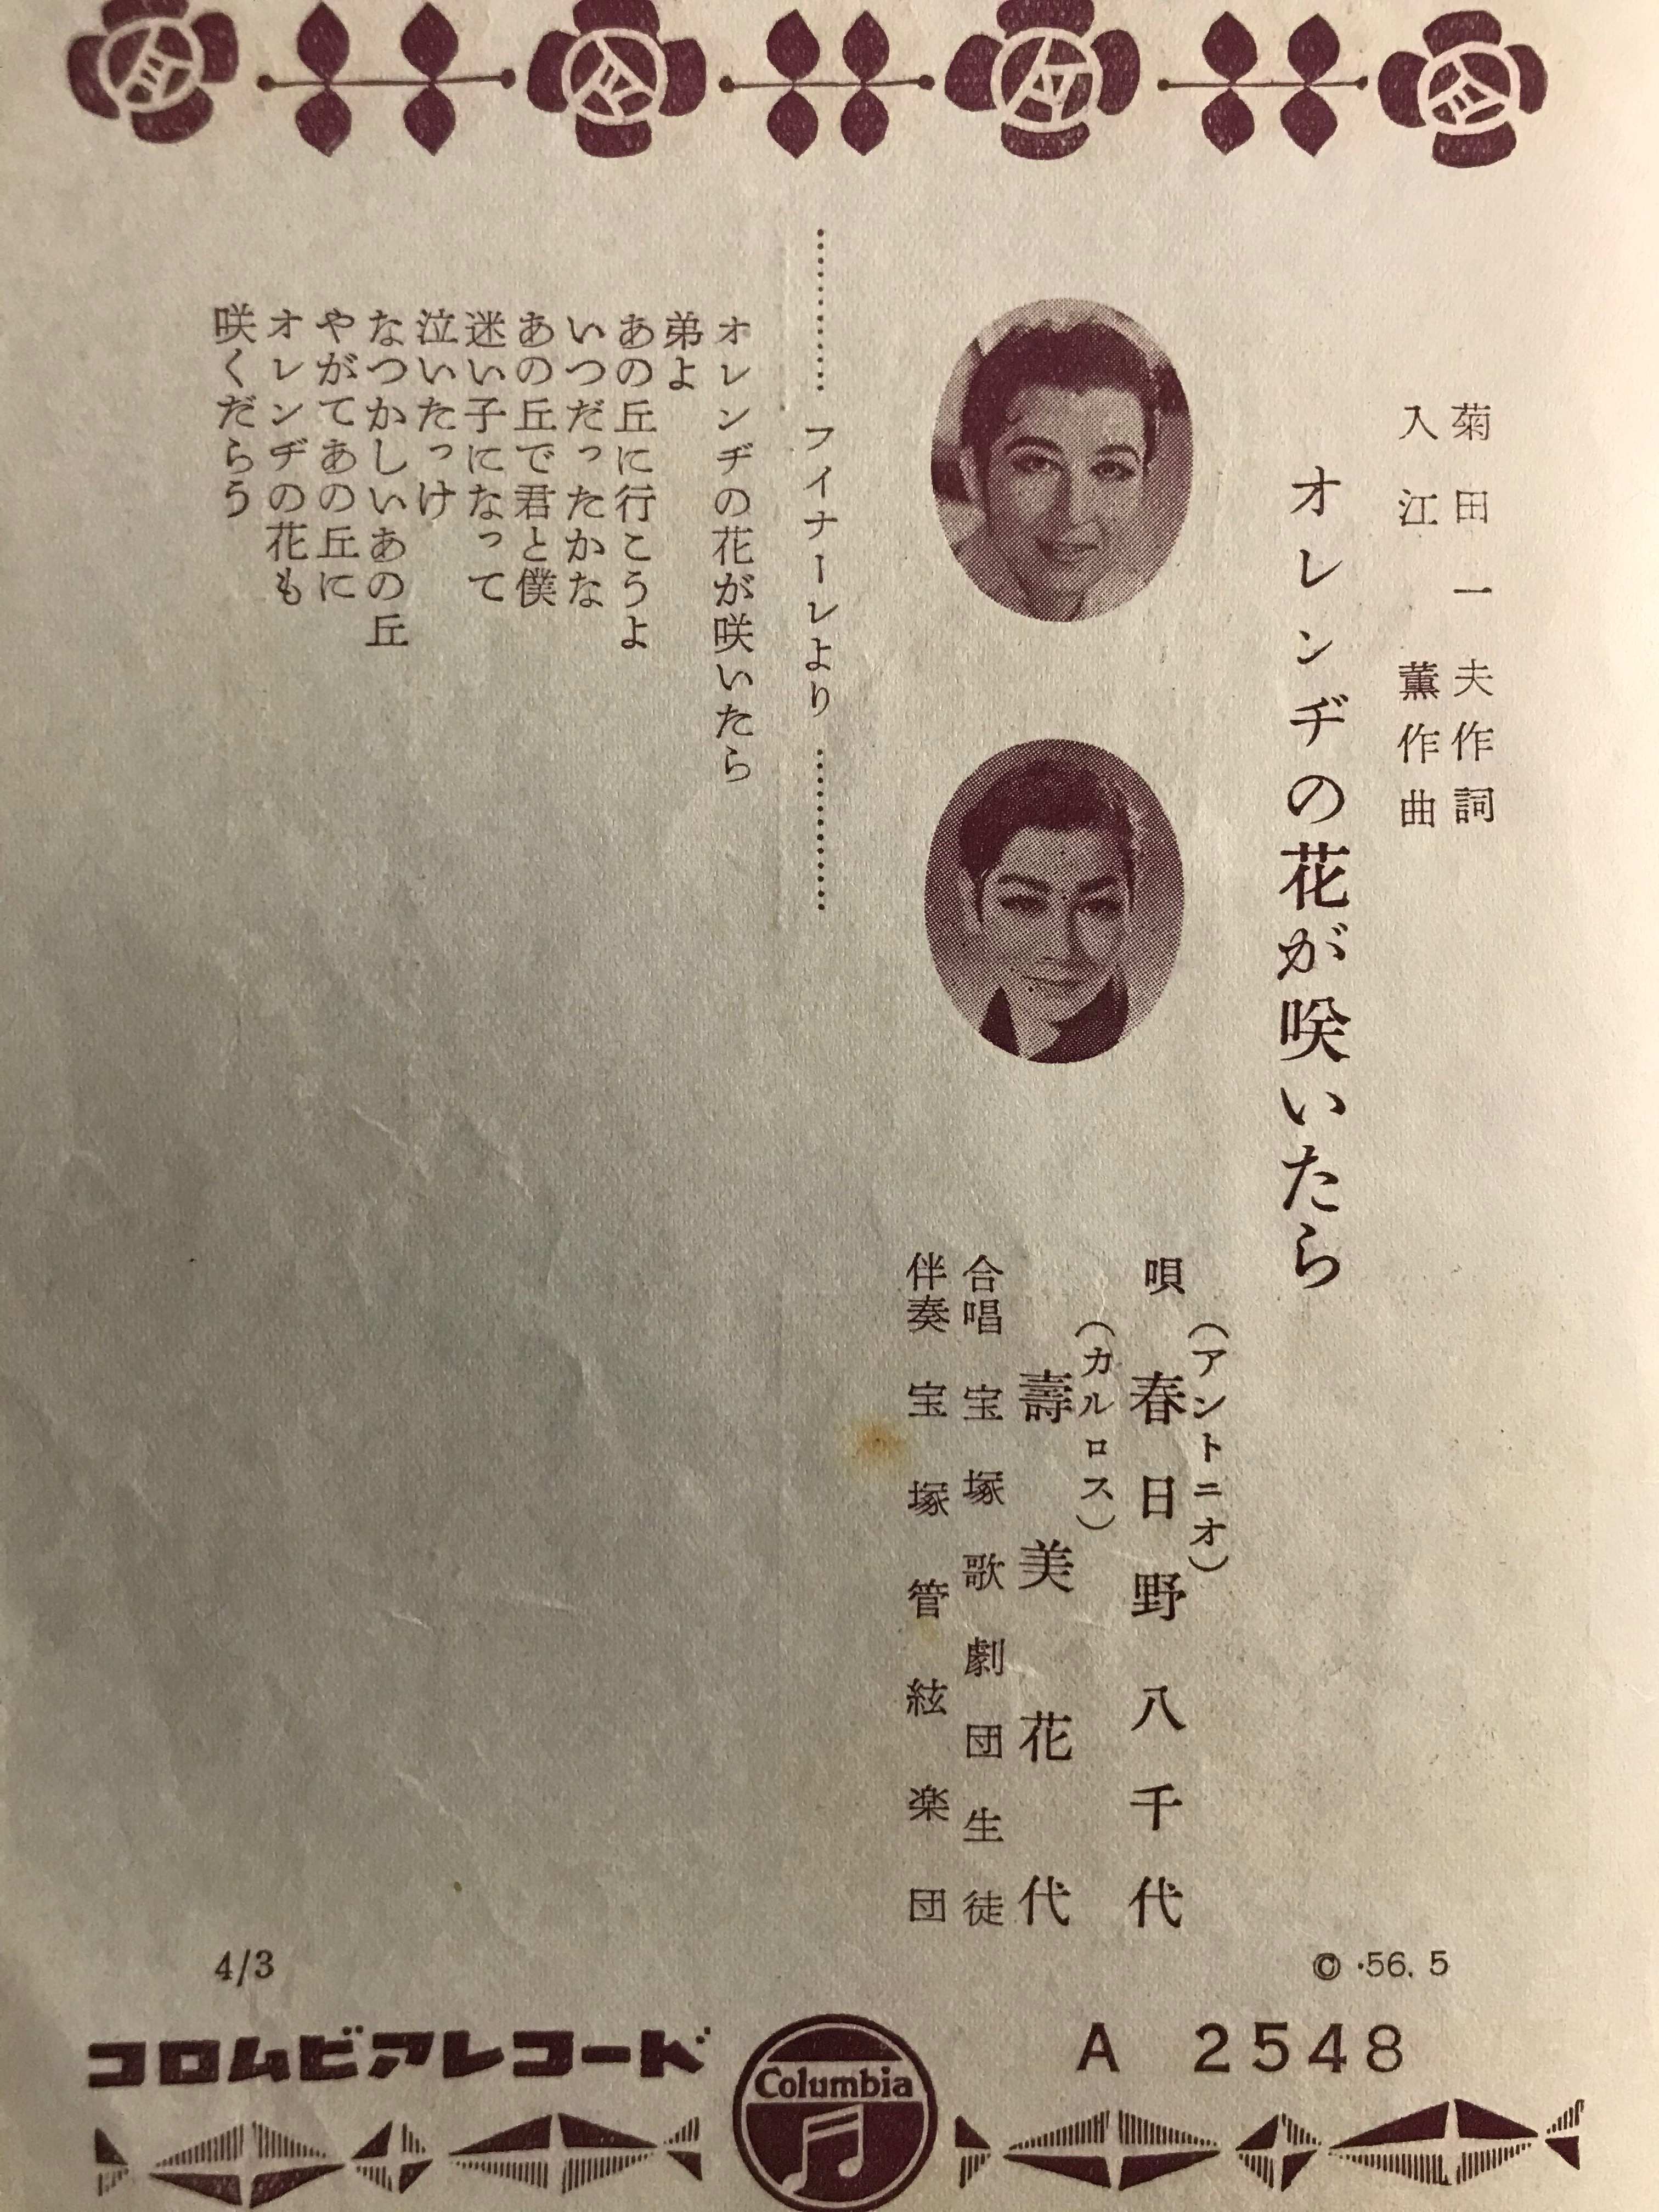 菊田一夫作詞
入江薫作曲
オレンヂの花が咲いたら
唄 (アントニオ) 春日野八千代
(カルロス) 壽美花代
合唱 宝塚歌劇団生徒
伴奏 宝塚管絃楽団
………… フイナーレより …………
オレンヂの花が咲いたら
弟よ
あの丘に行こうよ
いつだったかな
あの丘で君と僕
迷い子になって
泣いたっけ
なつかしいあの丘
やがてあの丘に
オレンヂの花も
咲くだらう
© ·56. 5
4/3
A 2548
コロムビアレコード
Columbia